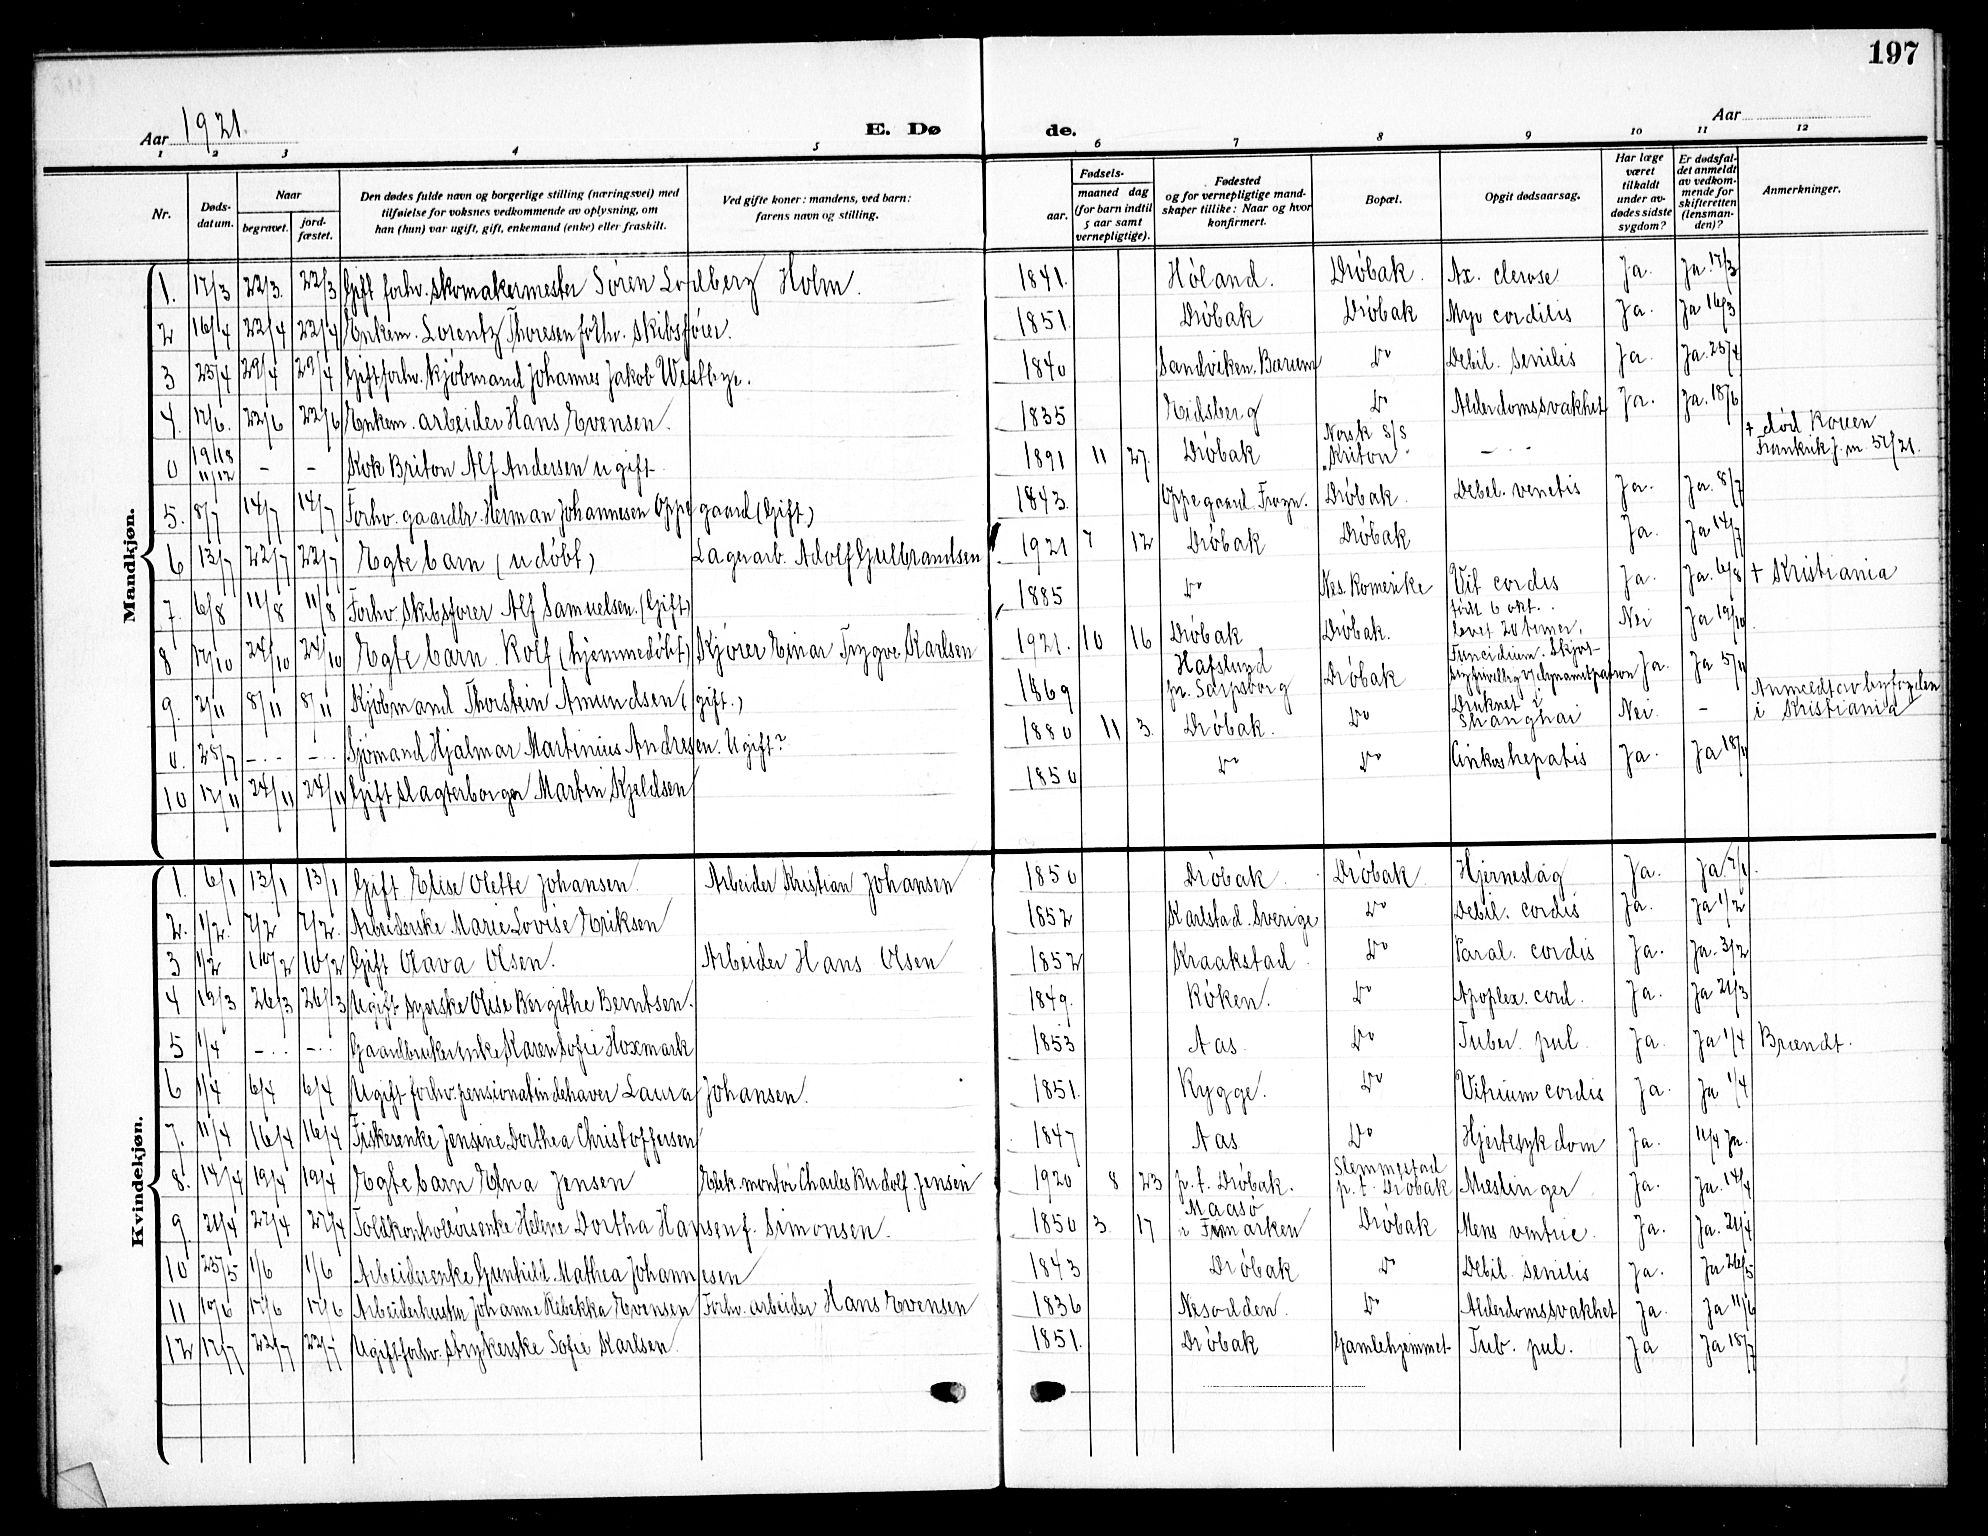 197
Aar 1921. E. Dø de. Aar
1 2 3 4 5 6 7 8 9 10 11 12
Nr. Døds-datum. Naar begravet. jord-fæstet. Den dødes fulde navn og borgerlige stilling (næringsvei) med tilføielse for voksnes vedkommende av oplysning, om han (hun) var ugift, gift, enkemand (enke) eller fraskilt. Ved gifte koner: mandens, ved barn: farens navn og stilling. Fødsels- aar. maaned dag (for barn indtil 5 aar samt vernepligtige). Fødested og for vernepligtige mand-skaper tillike: Naar og hvor konfirmert. Bopæl. Opgit dødsaarsag. Har læge været tilkaldt under av-dødes sidste sygdom? Er dødsfal-det anmeldt av vedkom-mende for skifteretten (lensman-den)? Anmerkninger.
Mandkjøn.
1. 17/3 22/3. 22/3 Gift forhv. skomakermester Søren Lodberg Holm. 1841. Høland. Drøbak. Ax. clerose Ja. Ja. 17/3
2 16/4 22/4 22/4 Enkem. Lorentz Thoresen forhv. skibsfører. 1851. Drøbak Drøbak Myo corditis Ja. Ja 16/3
3 23/4 29/4 29/4 Gift forhv. kjøbmand Johannes Jakob Westbye. 1840 Sandviken. Bærum Do Debil. senilis Ja. Ja. 25/4
4. 17/6. 22/6 22/6 Enkem. arbeider Hans Evensen. 1835 Eidsberg Do Alderdomssvakhet Ja. Ja. 18/6
0 19/18 11/12 - - Kok Briton Alf Andersen ugift. 1891 11 27. Drøbak Norsk S/S "Kriton" - . - + død Rouen Frankrik J. m. 51/21.
5. 8/7 14/7 14/7 Forhv. gaardbr. Herman Johannesen Oppegaard (Gift) 1843. Oppegaard. Frogn. Drøbak. Debil. venetis Ja. Ja. 8/7
6 13/7 22/7 22/7 Egte barn (udøbt) Lagerarb. Adolf Gulbrandsen 1921 7 12 Drøbak Drøbak Ja. Ja 14/7
7. 6/8 11/8 11/8 Forhv. skibsfører Alf Samuelsen. (Gift) 1885 Do Nes. Romerike Vit cordis Ja. Ja. 6/8 + Kristiania
8 17/10 24/10 24/10 Egte barn. Rolf (hjemmedøbt) Kjører Einar Trygve Karlsen 1921. 10 16 Drøbak Drøbak. født 6 okt. levet 20 timer. Nei Ja 19/10
9. 2/11 8/11 8/11 Kjøbmand Thorstein Amundsen (gift.) 1869 Hafslund pr. Sarpsborg Drøbak Ja. Ja 5/11
0. 25/7 - . - - . - Sjømand Hjalmar Martinius Andresen. Ugift? 1880 11 3. Drøbak. Do Druknet i Shanghai Nei. - Anmeldt av byfogden i Kristiania
10 17/11 24/11 24/11 Gift slagterborger Martin Kjeldsen 1850 Do Do Cirkoshepatis Ja. Ja 18/11
Kvindekjøn.
1. 6/1 13/1 13/1 Gift Elise Olette Johansen. Arbeider Kristian Johansen 1850 Drøbak. Drøbak. Hjerneslag Ja. Ja. 7/1
2. 1/2. 7/2 7/2. Arbeiderske Marie Lovise Eriksen 1852 Karlstad. Sverige Do Debil. cordis Ja. Ja 1/2
3 1/2 10/2 10/2 Gift Olava Olsen. Arbeider Hans Olsen 1852 Kraakstad. Do Paral. cordis Ja. Ja. 3/2
4 19/3 26/3 26/3 Ugift syerske Olise Bergithe Berntsen. 1849. Røken. Do Apoplex. cord. Ja. Ja 21/3
5 1/4 - . . - . . Gaardbrukerenke Karen Sofie Hoxmark 1853 Aas. Do Tuber. pul. Ja. Ja 1/4 Brændt.
6 1/4 6/4 6/4 Ugift forhv. pensionatindehaver Laura Johansen. 1851. Rygge. Do Vitrium cordis Ja. Ja 1/4
7. 11/4 16/4 16/4 Fiskerenke Jensine Dorthea Christoffersen 1847 Aas Do Hjertesykdom Ja. 11/4 Ja.
8. 14/4 19/4 19/4 Egte barn Elna Jensen Elek. montør Charles Rudolf Jensen 1920 8 23 p. t. Drøbak. Slemmestad p. t. Drøbak Mæslinger Ja. Ja. 14/4
9. 21/4 27/4 27/4 Toldkontrollørsenke Helene Dortha Hansen f. Simonsen. 1850 3. 17 Maasø i Finmarken Drøbak Mens ventric. Ja. Ja. 21/4
10 25/5 1/6 1/6 Arbeiderenke Gunhild Mathea Johannesen 1843 Drøbak Do Debil senilis Ja. Ja 26/5
11 10/6 17/6 17/6 Arbeiderhustru Johanne Rebekka Evensen Forhv. arbeider Hans Evensen 1836 Nesodden. Do Alderdomssvakhet Ja. Ja 11/6
12 17/7 22/7 22/7 Ugift forhv. strykerske Sofie Karlsen. 1851. Drøbak Gamlehjemmet. Tub. pul. Ja Ja 18/7